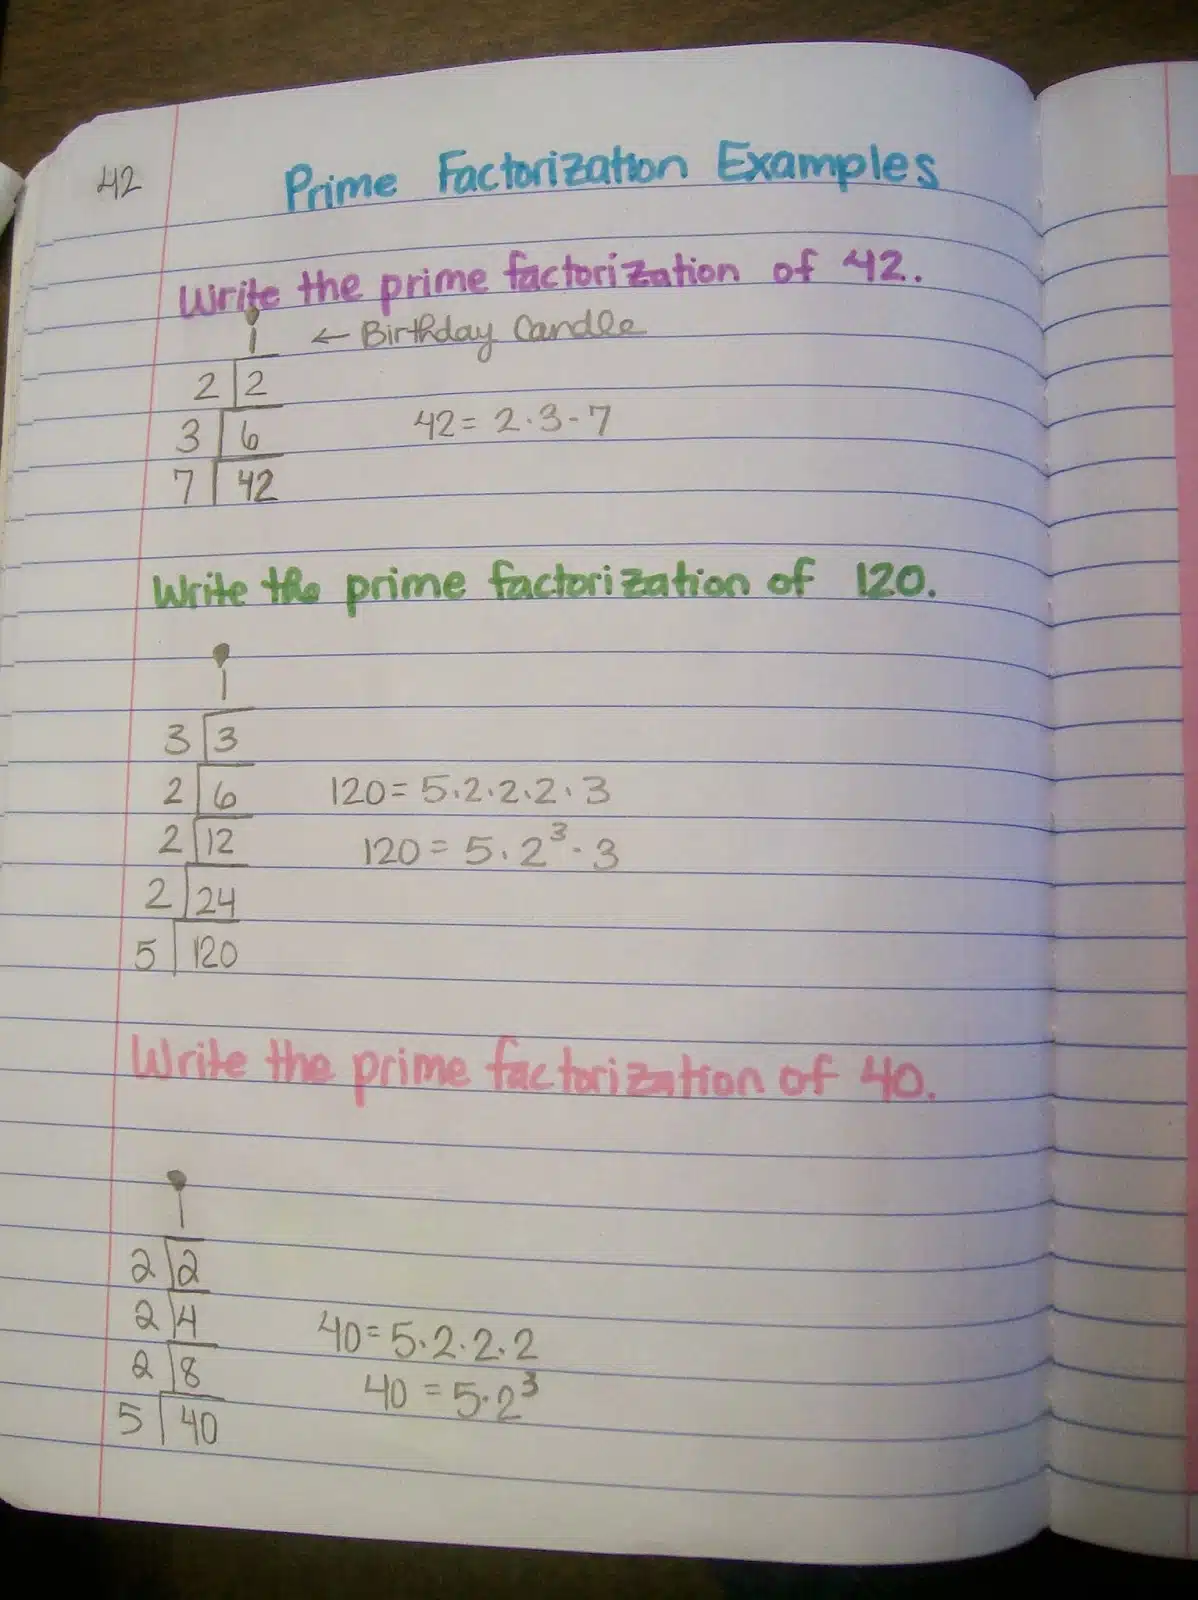 42
Prime Factorization Examples
Write the prime factorization of 42.
1 ← Birthday Candle
2 2
3 6
42 = 2·3·7
7 42
Write the prime factorization of 120.
1
3 3
2 6
120 = 5·2·2·2·3
2 12
120 = 5·2³·3
2 24
5 120
Write the prime factorization of 40.
1
2 2
2 4
40 = 5·2·2·2
2 8
40 = 5·2³
5 40